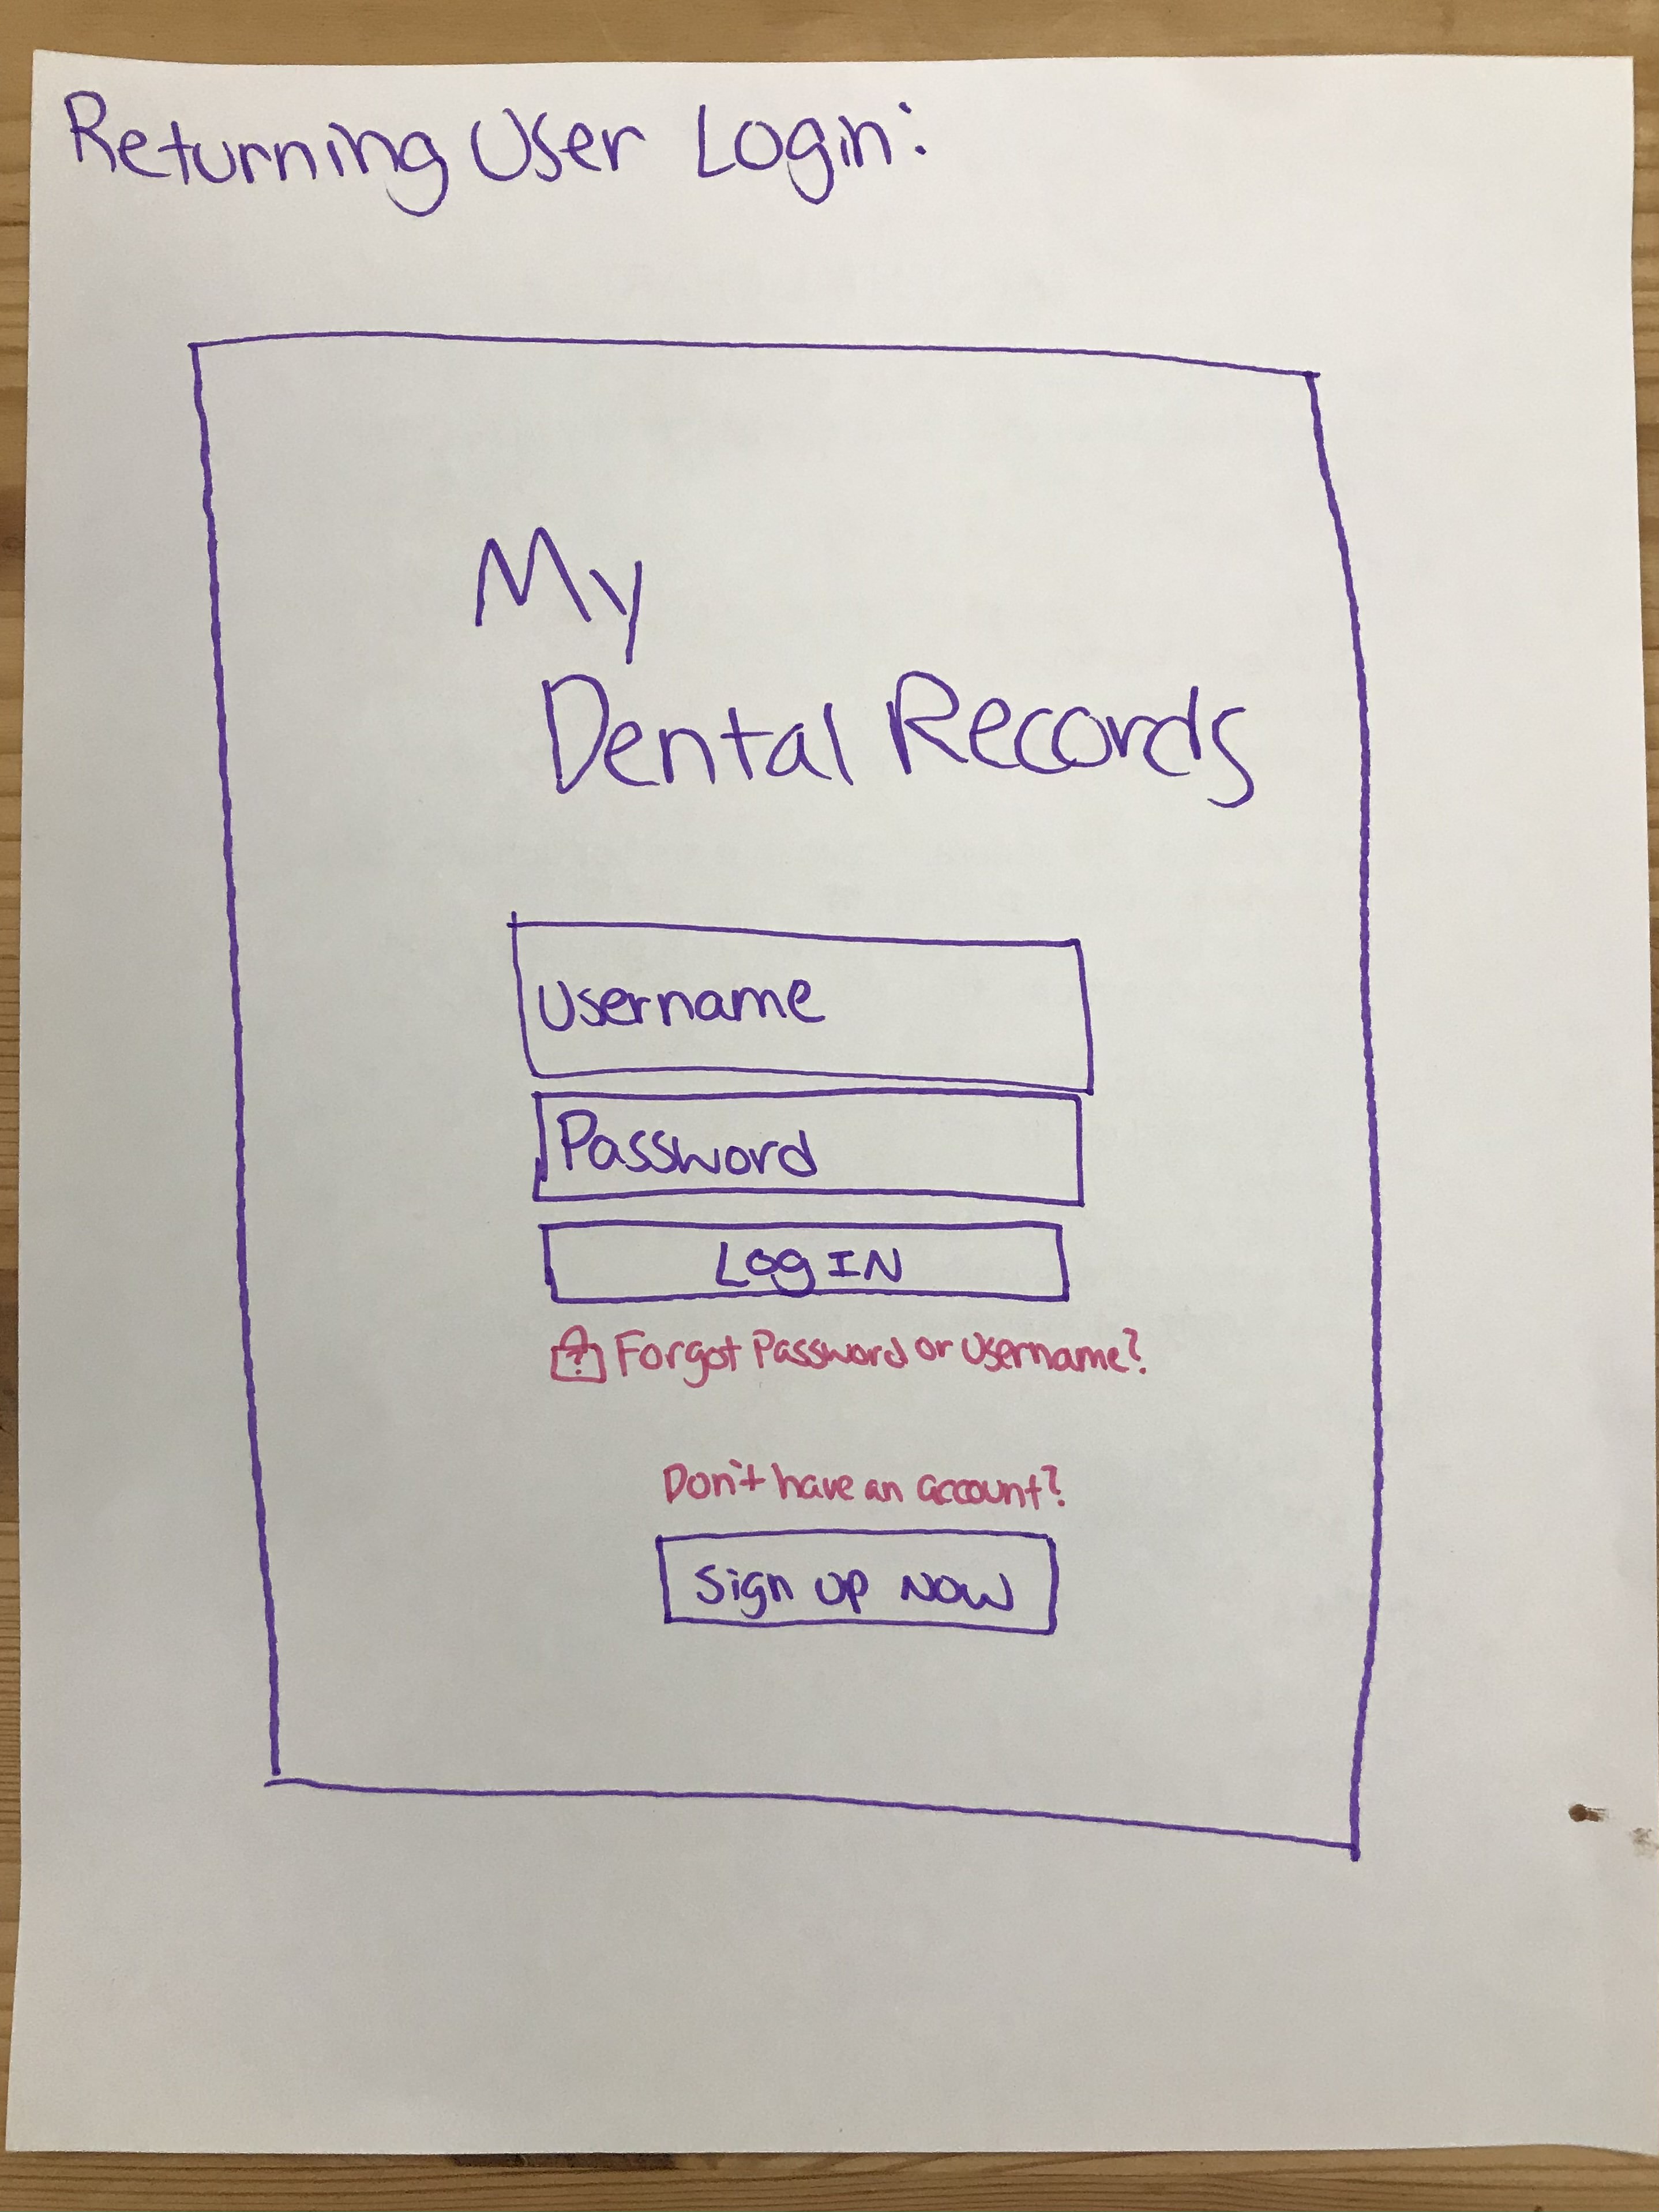 Returning User Login:
My
Dental Records
Username
Password
Log IN
? Forgot Password or Username?
Don't have an account?
Sign up NOW